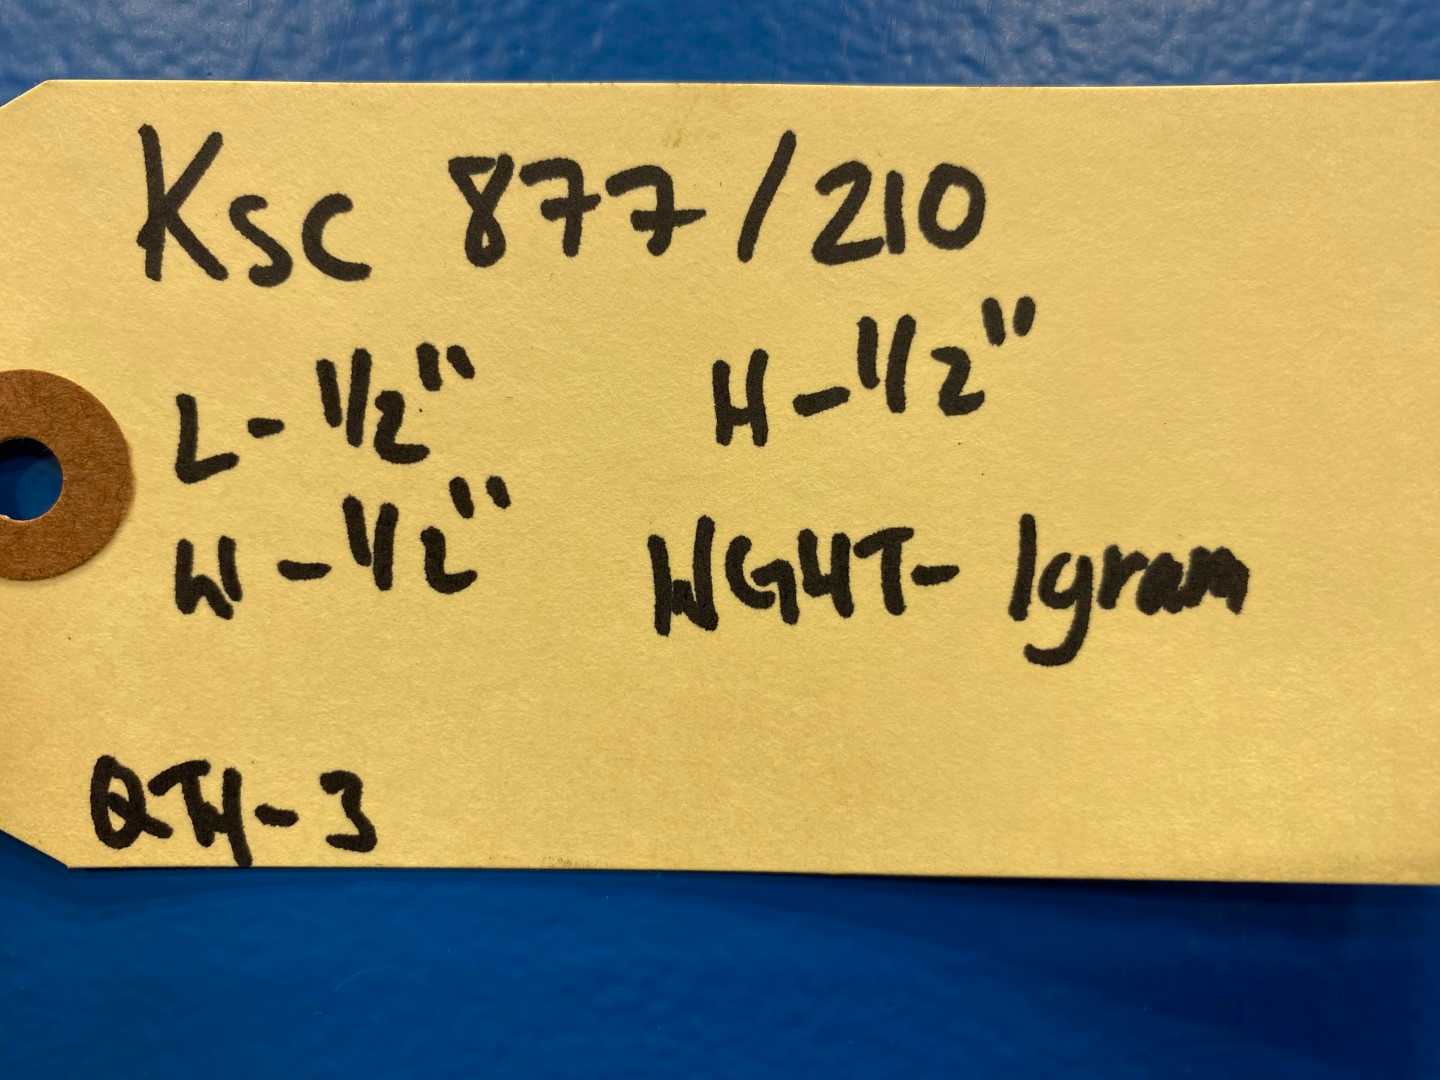 Ksc 877/210
L-1/2" H-1/2"
W-1/2" WGHT- 1gram
QTY-3